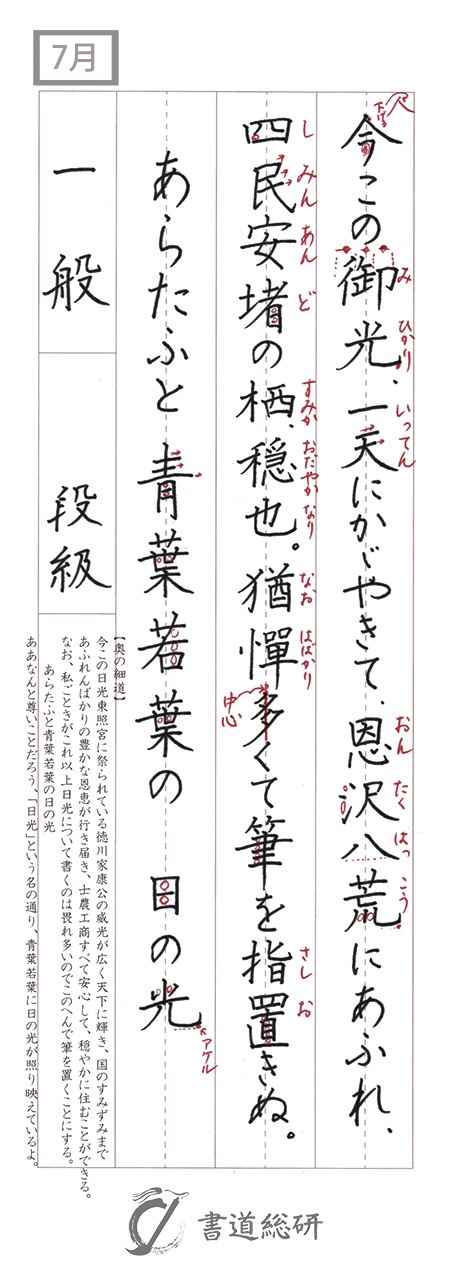 7月
今この御光、一天にかゞやきて、恩沢八荒にあふれ、
み
ひかり
いってん
おん
たく
はっ
こう
下げる
四民安堵の栖、穏也。猶憚多くて筆を指置きぬ。
し
みん
あん
ど
すみか
おだやか
なり
なお
はばかり
さし
お
中心
あらたふと青葉若葉の 日の光
アケル
一般
段級
【奥の細道】
今この日光東照宮に祭られている徳川家康公の威光が広く天下に輝き、国のすみずみまで
あふれんばかりの豊かな恩恵が行き届き、士農工商すべて安心して、穏やかに住むことができる。
なお、私ごときがこれ以上日光について書くのは畏れ多いのでこのへんで筆を置くことにする。
あらたふと青葉若葉の日の光
ああなんと尊いことだろう、「日光」という名の通り、青葉若葉に日の光が照り映えているよ。
書道総研